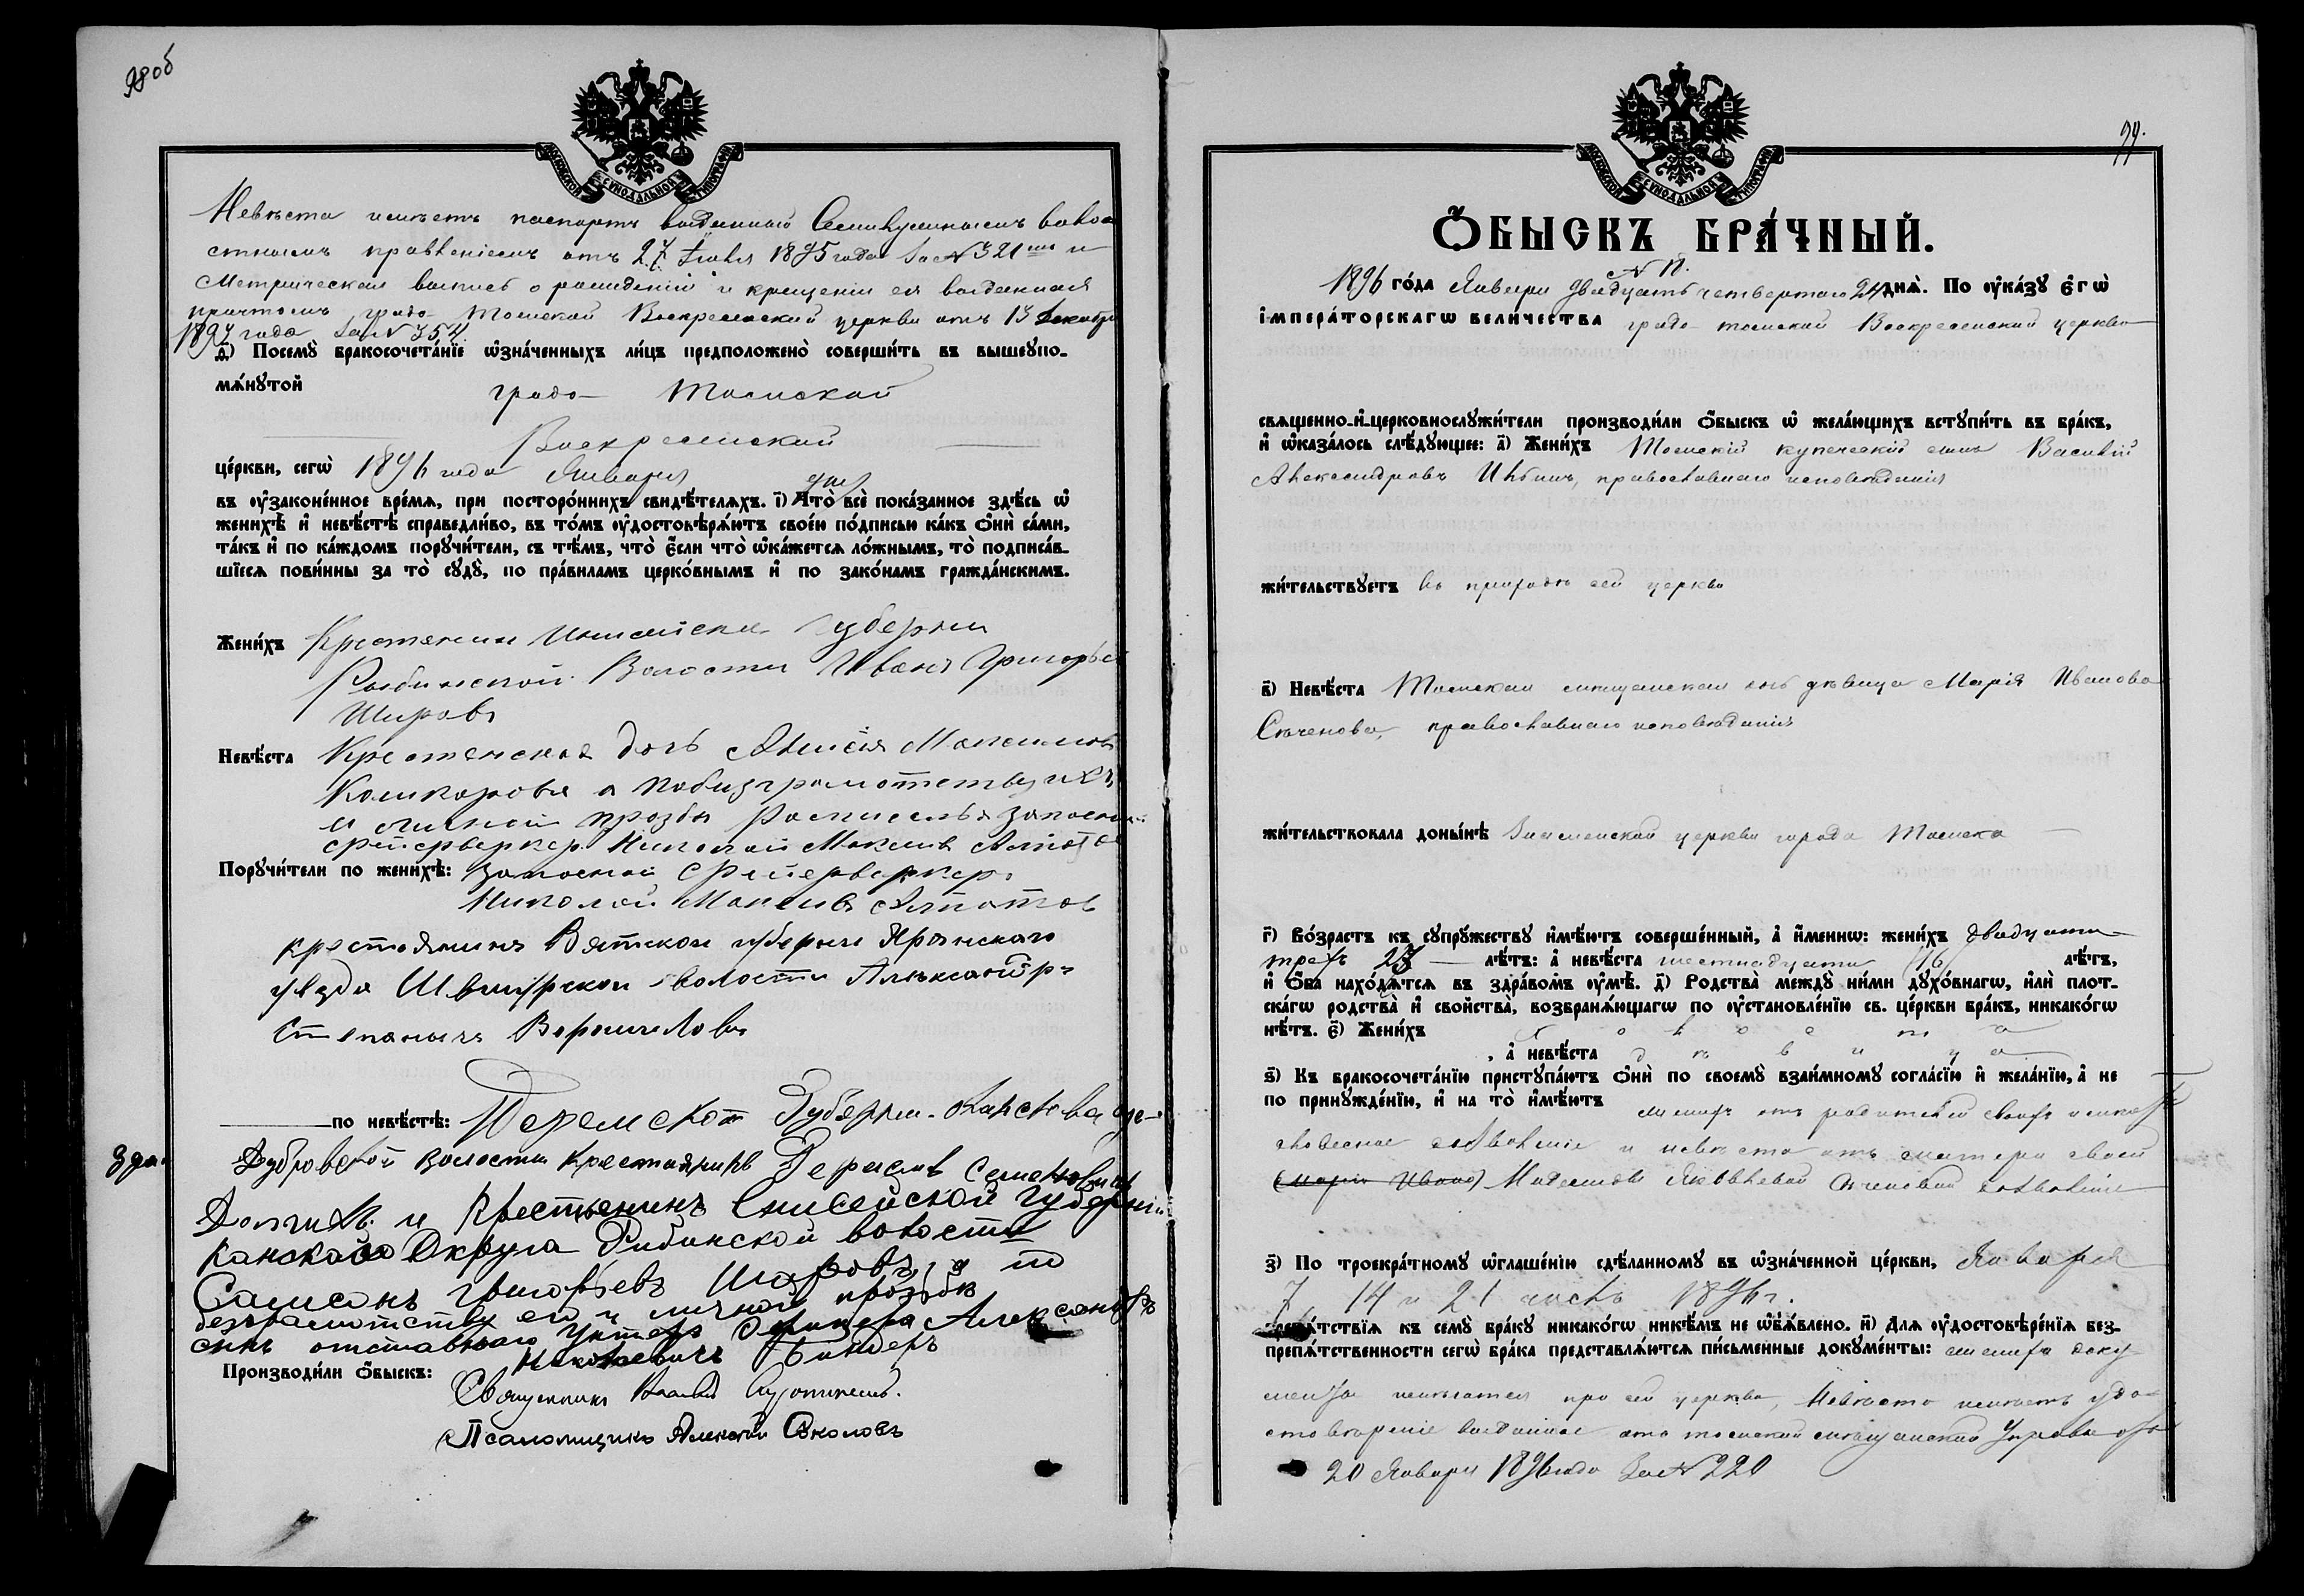 98об
МОСКОВСКОЙ СУНОДАЛЬНОЙ ТИПОГРАФІИ
Невѣста имѣетъ паспортъ выданный волос
стнымъ правленіемъ отъ 27 Іюля 1895 года за № 321мъ и
Метрическая выпись о рожденіи и крещеніи ея выданная
причтомъ градо Томской Воскресенской церкви отъ 13 Декабря
189 года за № 354
ѳ҃) Посемꙋ̀ бракосочета́нїе ѡ҆зна́ченныхъ ли́цъ предположено̀ соверши́ть въ вышеꙋпо-
мѧ́нꙋтой
градо Томской
Воскресенской
це́ркви, сегѡ̀ 1896 года Января дня
въ ᲂу҆законе́нное вре́мѧ, при посторо́ннихъ свидѣ́телѧхъ. і҃) Что̀ всѐ пока́занное здѣ́сь ѡ҆
женихѣ̀ и҆ невѣ́стѣ справедли́во, въ то́мъ ᲂу҆достовѣрѧ́ютъ свое́ю по́дписью ка́къ ѻ҆нѝ са́ми,
та́къ и҆ по ка́ждомъ порꙋчи́тели, съ тѣ́мъ, что̀ є҆́сли что̀ ѡ҆ка́жетсѧ ло́жнымъ, то̀ подписа́в-
шїесѧ пови́нны за то̀ сꙋдꙋ̀, по пра́виламъ церко́внымъ и҆ по зако́намъ гражда́нскимъ.
Жени́хъ Крестенин Губернии
Рыбинской Волости Иванъ Григорьев
Шировъ
Невѣ́ста Крестенская дочь Анисия Максимов
а ихъ
и личной прозбы Росписелся запасной
Николай Максимъ
Порꙋчи́тели по женихѣ̀: запасной Фейерверкер
Николай Максимъ
крестьянинъ Вятской губерни Яранскаго
уезда волости Александръ
Степанычъ Ворошиловъ
по невѣ́стѣ: Пермской Губерни
Дубровской волости Крестьянинъ Герасимъ Семеновичъ
Долгихъ и Крестьенинъ Енисейской губерніи
Канскаго Округа Рибинской волости
Самсонъ Григорьевъ Шаровъ, а по
безграмотству его и личной прозьбѣ
сынъ отставного Унтеръ Офицера Александръ
Николаевичъ
Производи́ли ѻ҆́быскъ:
Священникъ
Псаломщикъ Алексѣй Соколовъ
99.
МОСКОВСКОЙ СУНОДАЛЬНОЙ ТИПОГРАФІИ
Ѻ҆́БЫСКЪ БРА́ЧНЫЙ.
№ 11.
1896 го́да Января двадцать четвертаго 24 днѧ̀. По ᲂу҆ка́зꙋ є҆гѡ̀
і҆мпера́торскагѡ вели́чества градо-томской Воскресенской церкви
свѧщенно-и҆-церковнослꙋжи́тели производи́ли ѻ҆́быскъ ѡ҆ жела́ющихъ встꙋпи́ть въ бра́къ,
и҆ ѡ҆каза́лось слѣ́дꙋющее: а҃) Жени́хъ Томскій купеческій сынъ Василій
Александровъ православнаго исповѣданія
жи́тельствꙋетъ въ приходѣ сей церкви
в҃) Невѣ́ста Томская мещанская дочь дѣвица Марія Иванова
православнаго исповѣданія
жи́тельствовала доны́нѣ Знаменской церкви города Томска
г҃) Во́зрастъ къ сꙋпрꙋ́жествꙋ и҆мѣ́ютъ соверше́нный, а҆ и҆́меннѡ: жени́хъ двадцати
трехъ 23 лѣ́тъ: а҆ невѣ́ста шестнадцати (16) лѣ́тъ,
и҆ ѻ҆́ба нахо́дѧтсѧ въ здра́вомъ ᲂу҆мѣ̀. д҃) Родства̀ междꙋ̀ ни́ми дꙋхо́внагѡ, и҆лѝ плот-
ска́гѡ родства̀ и҆ сво́йства, возбранѧ́ющагѡ по ᲂу҆становле́нїю св. це́ркви бра́къ, никако́гѡ
нѣ́тъ. є҃) Жени́хъ холостъ
, а҆ невѣ́ста дѣвица
ѕ҃) Къ бракосочета́нїю пристꙋпа́ютъ ѻ҆нѝ по своемꙋ̀ взаи́мномꙋ согла́сїю и҆ жела́нїю, а҆ не
по принꙋжде́нїю, и҆ на то̀ и҆мѣ́ютъ женихъ отъ родителей своихъ
словесное дозволеніе и невѣста отъ матери своей
(марія Ивано) Яковлевой дозволеніе
з҃) По троекра́тномꙋ ѡ҆глаше́нїю сдѣ́ланномꙋ въ ѡ҆зна́ченной це́ркви, Января
7 14 и 21 числъ 1896 г.
препѧ́тствїѧ къ семꙋ̀ бра́кꙋ никако́гѡ никѣ́мъ не ѡ҆б̾ѧ́влено. и҃) Длѧ ᲂу҆достовѣре́нїѧ без-
препѧ́тственности сегѡ̀ бра́ка представлѧ́ютсѧ пи́сьменные докꙋме́нты: жениха доку-
менты имѣются при сей церкви, Невѣста имѣетъ удо-
стовѣреніе выданное ото томской мѣщанской Управы отъ
20 Января 1896 года за № 220